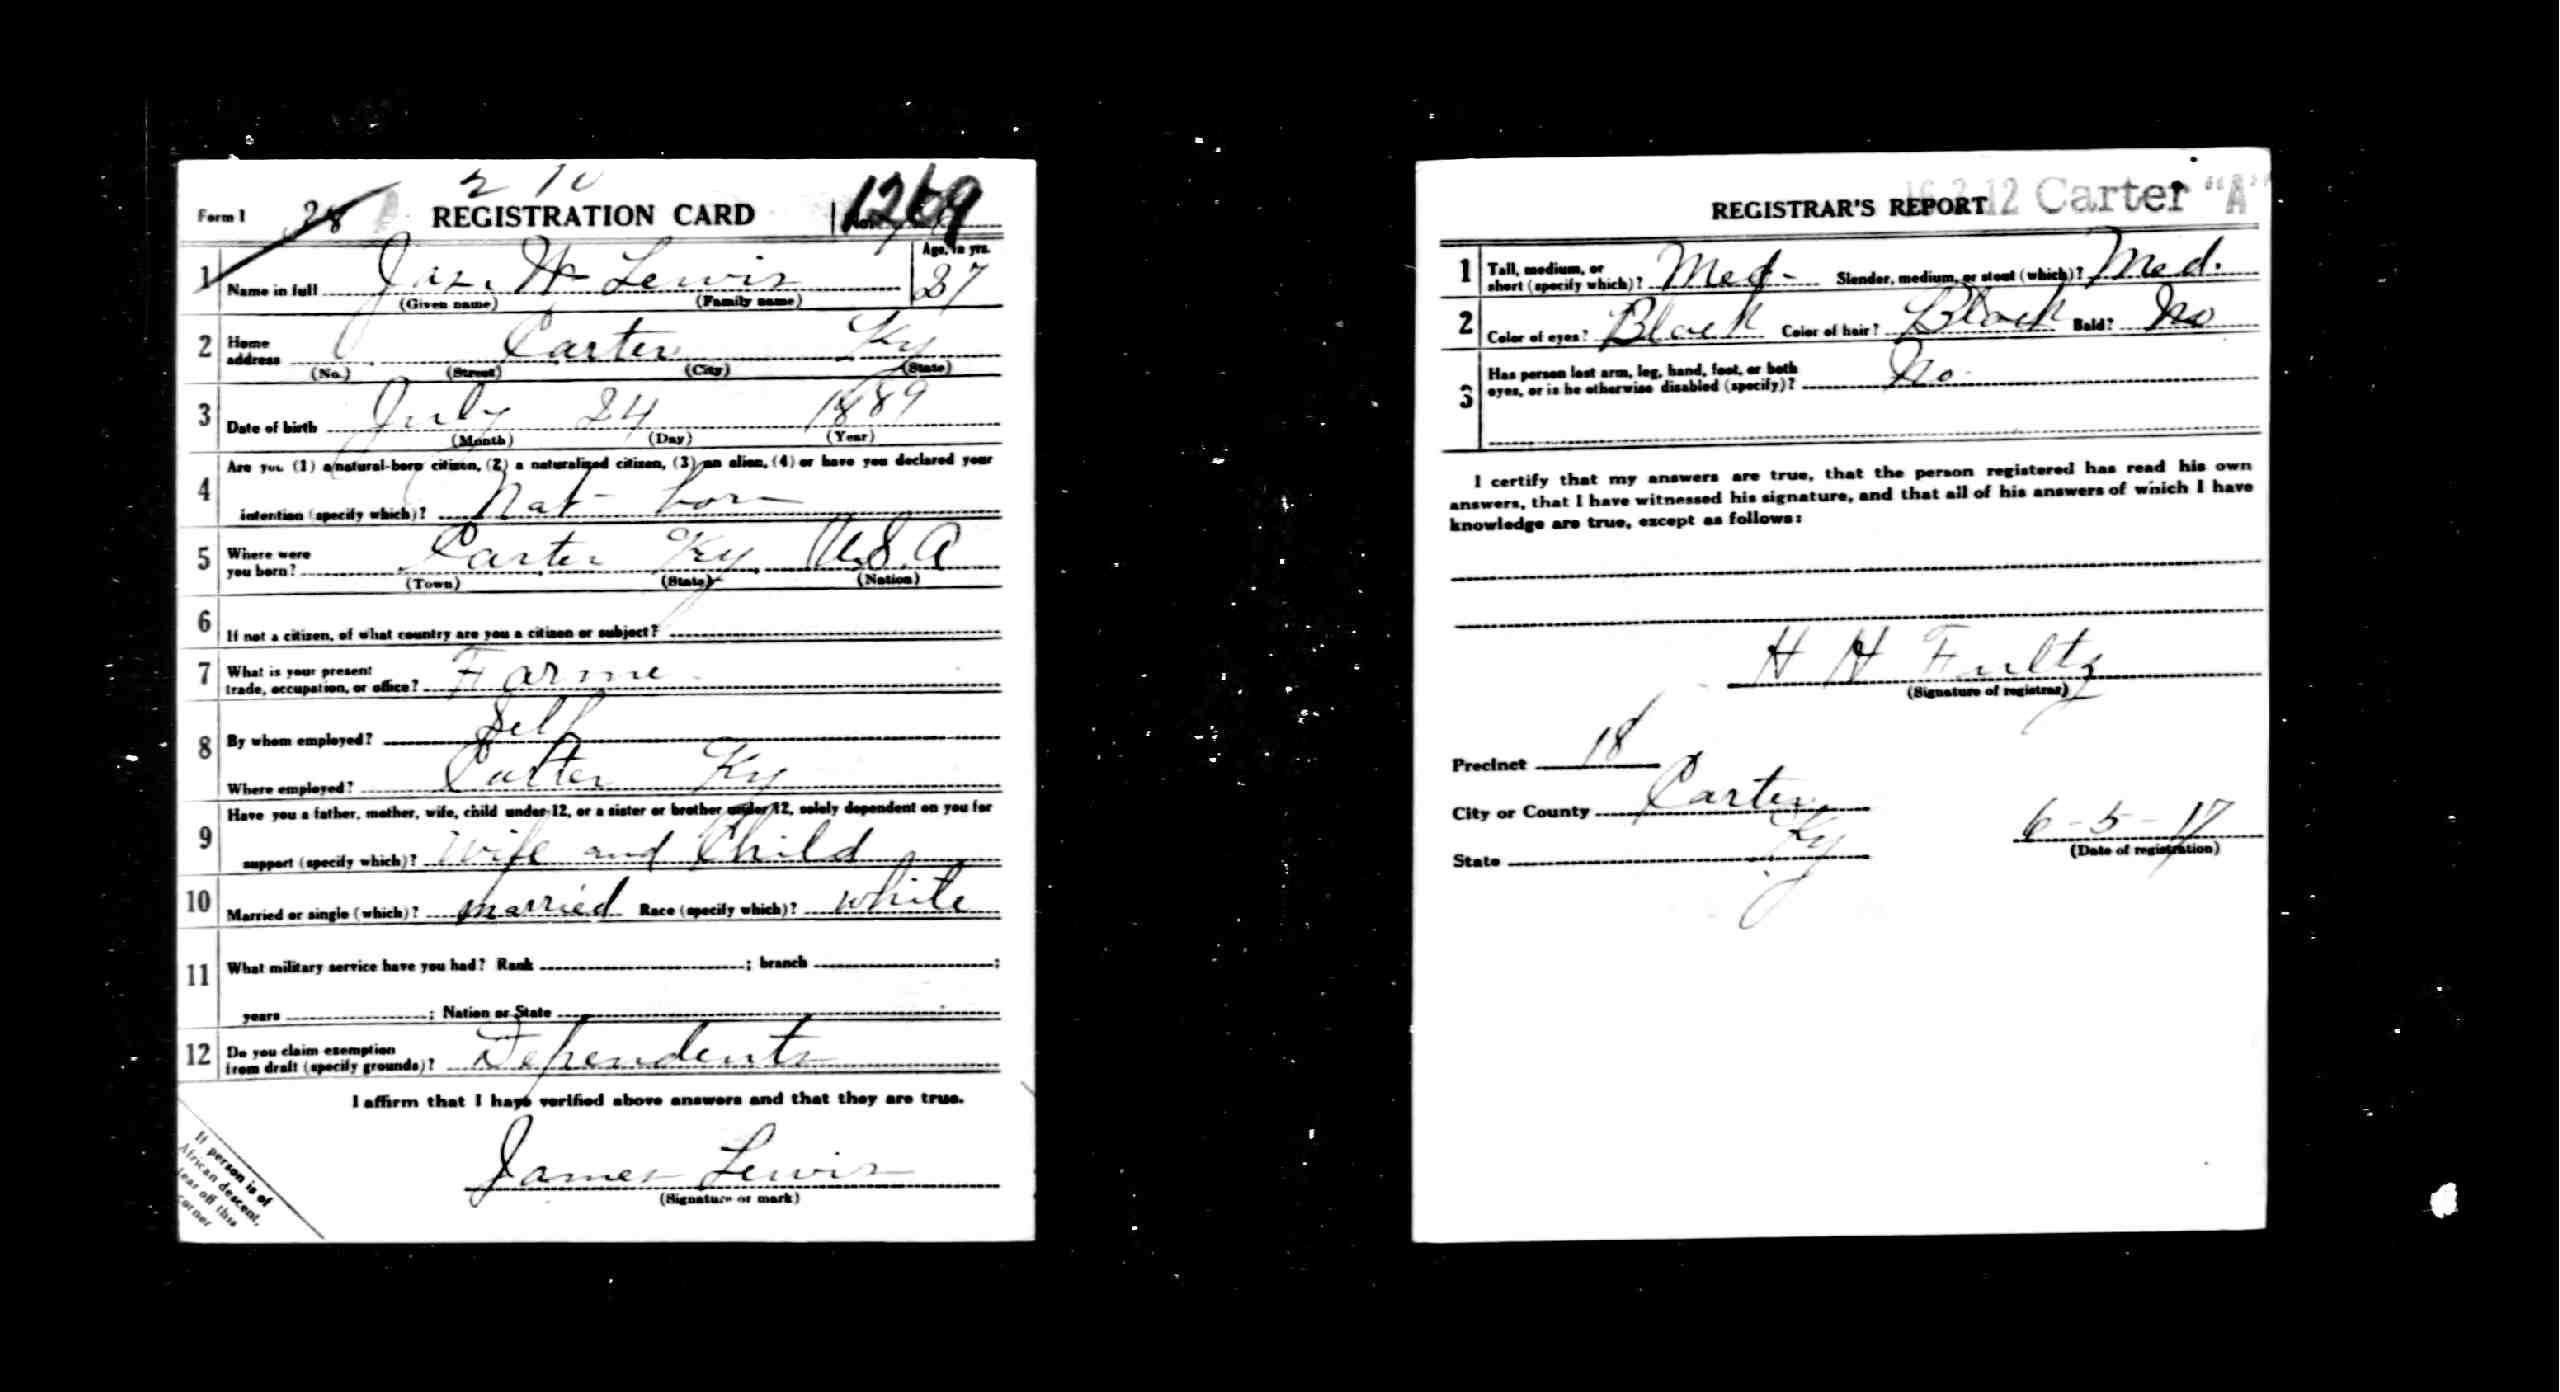 2 10
Form 1 28 REGISTRATION CARD No. 1269
1 Name in full Jas. W Lewis Age, in yrs. 27
(Given name) (Family name)
2 Home address Carter Ky
(No.) (Street) (City) (State)
3 Date of birth July 24 1889
(Month) (Day) (Year)
4 Are you (1) a natural-born citizen, (2) a naturalized citizen, (3) an alien, (4) or have you declared your
intention (specify which)? Nat- born
5 Where were you born? Carter Ky U.S.A
(Town) (State) (Nation)
6 If not a citizen, of what country are you a citizen or subject?
7 What is your present
trade, occupation, or office? Farme
8 By whom employed? Self
Where employed? Carter Ky
9 Have you a father, mother, wife, child under 12, or a sister or brother under 12, solely dependent on you for
support (specify which)? Wife and Child
10 Married or single (which)? married Race (specify which)? white
11 What military service have you had? Rank ; branch ;
years ; Nation or State
12 Do you claim exemption
from draft (specify grounds)? Dependents
I affirm that I have verified above answers and that they are true.
James Lewis
(Signature or mark)
If person is of
African descent,
tear off this
corner
REGISTRAR'S REPORT 16 2 12 Carter "A"
1 Tall, medium, or
short (specify which)? Med- Slender, medium, or stout (which)? Med.
2 Color of eyes? Black Color of hair? Black Bald? No
3 Has person lost arm, leg, hand, foot, or both
eyes, or is he otherwise disabled (specify)? No.
I certify that my answers are true, that the person registered has read his own
answers, that I have witnessed his signature, and that all of his answers of which I have
knowledge are true, except as follows:
H H Fultz
(Signature of registrar)
Precinct 18
City or County Carter
State Ky 6-5-17
(Date of registration)